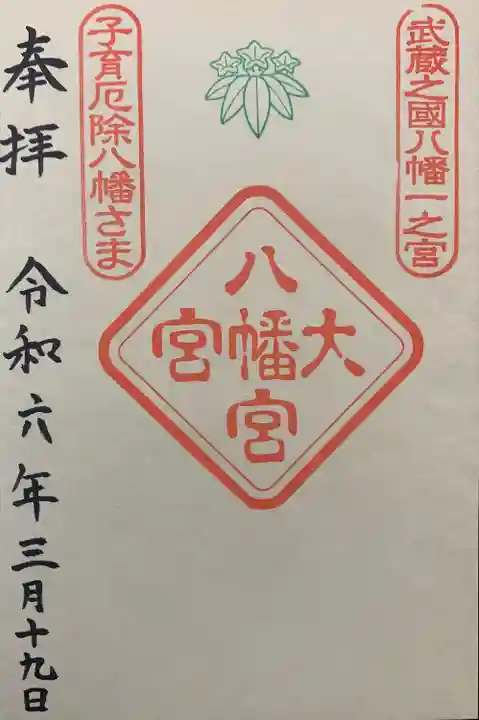 武蔵之國八幡一之宮
大宮八幡宮
子育厄除八幡さま
奉拝 令和六年三月十九日